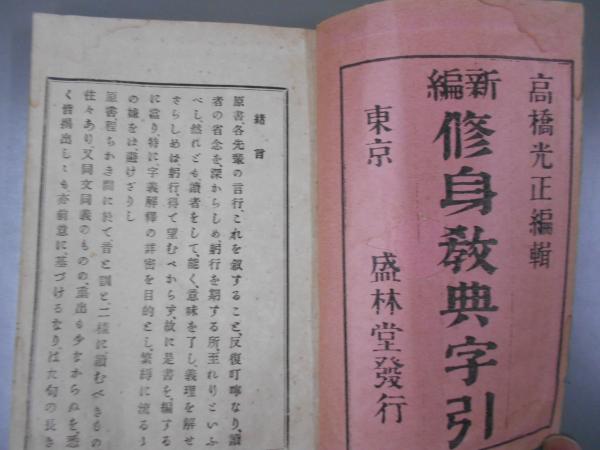 高橋光正編輯
新編
修身敎典字引
東京
盛林堂發行
緖言
原書、各先輩の言行、これを叙すること、反復叮嚀なり、讀
者の省念を深からしめ、躬行を期する所至れりといふ
べし、然れども、讀者をして、能く、意味を了し、義理を解せ
さらしめは、躬行、得て望むべからず、故に是書を、編する
に當り、特に、字義解釋の詳密を目的とし、繁縟に流るゝ
の嫌をは、避けざりし
原書、程ちかき間に於て、音と訓と、二樣に讀むべきもの
往々あり、又同文同義のものの、重出も少なからぬを、悉
く皆摘出しゝも、亦前意に基づけるなり、は大旬の長き